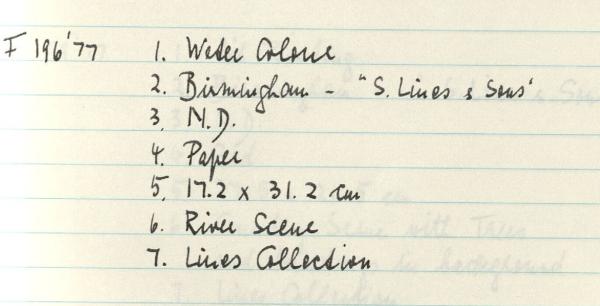 F 196'77 1. Water Colour
2. Birmingham - "S. Lines & Sons"
3. N.D.
4. Paper
5. 17.2 x 31.2 cm
6. River Scene
7. Lines Collection